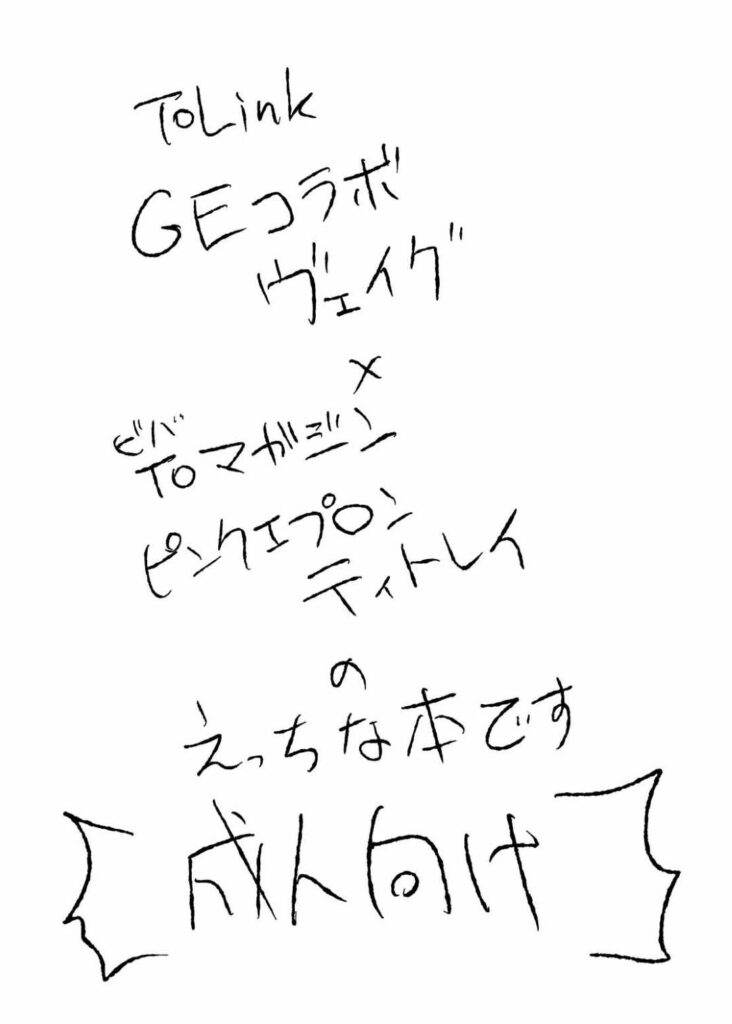 ToLink
GEコラボ
ヴェイグ
×
ビバ
Toマガジン
ピンクエプロン
ティトレイ
の
えっちな本です
成人向け